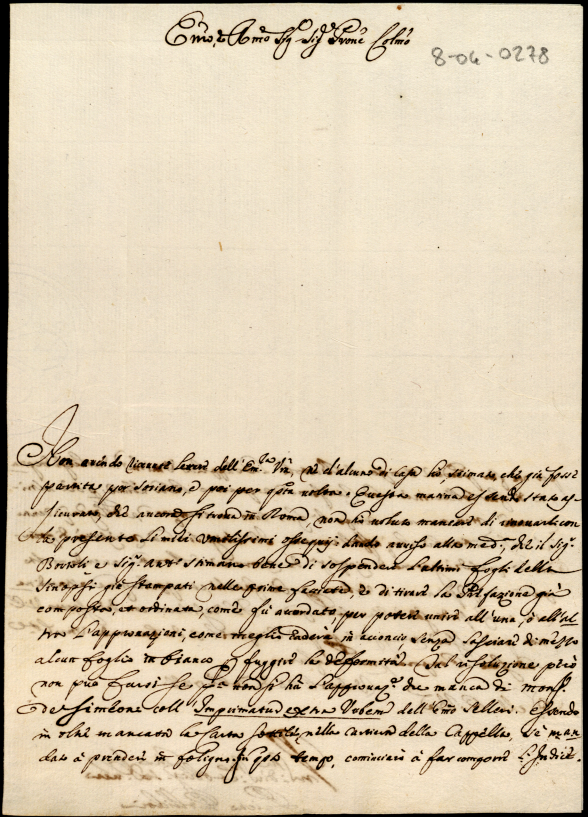 Em̃o, e Rm̃o Sig.r Sig.r Pron̄e Colm̃o
8-04-0278
Non avendo ricevute lettere dell'Em.za Vr̄a, nè d'alcuno di Casa hò stimato, che già fosse
partita per Soriano, e poi per
Questa matina essendo stato as-
sicurato, che ancora si trova in Roma, non hò voluto mancare di
la presente li miei umilissimi ossequij, dando avviso alla med.a, che il Sig.r
e Sig.r stimano bene di sospendere l'ultimi fogli della
Sinapsi già stampati nelle prime facciate, e di tirare la Prefazione già
composta, et ordinata, come fù accordato per poter unire all'una, ò all'al-
tro l'approvazioni, come meglio caderà in acconcio senza lasciare di mezzo
alcun foglio in bianco, e fuggire la deformità. Tal risoluzione però
non può farsi se non si hà l'approvaz.e che manca di Mons.
de Simeone coll'Imprimatur extra Urbem dell'Em̃o Selleri. Essendo
in oltre mancata la carta nella cartiera della Cappella, se man-
dato à prendere in foligno. In q̃sto tempo, cominciarà à far comporre l'Indice.